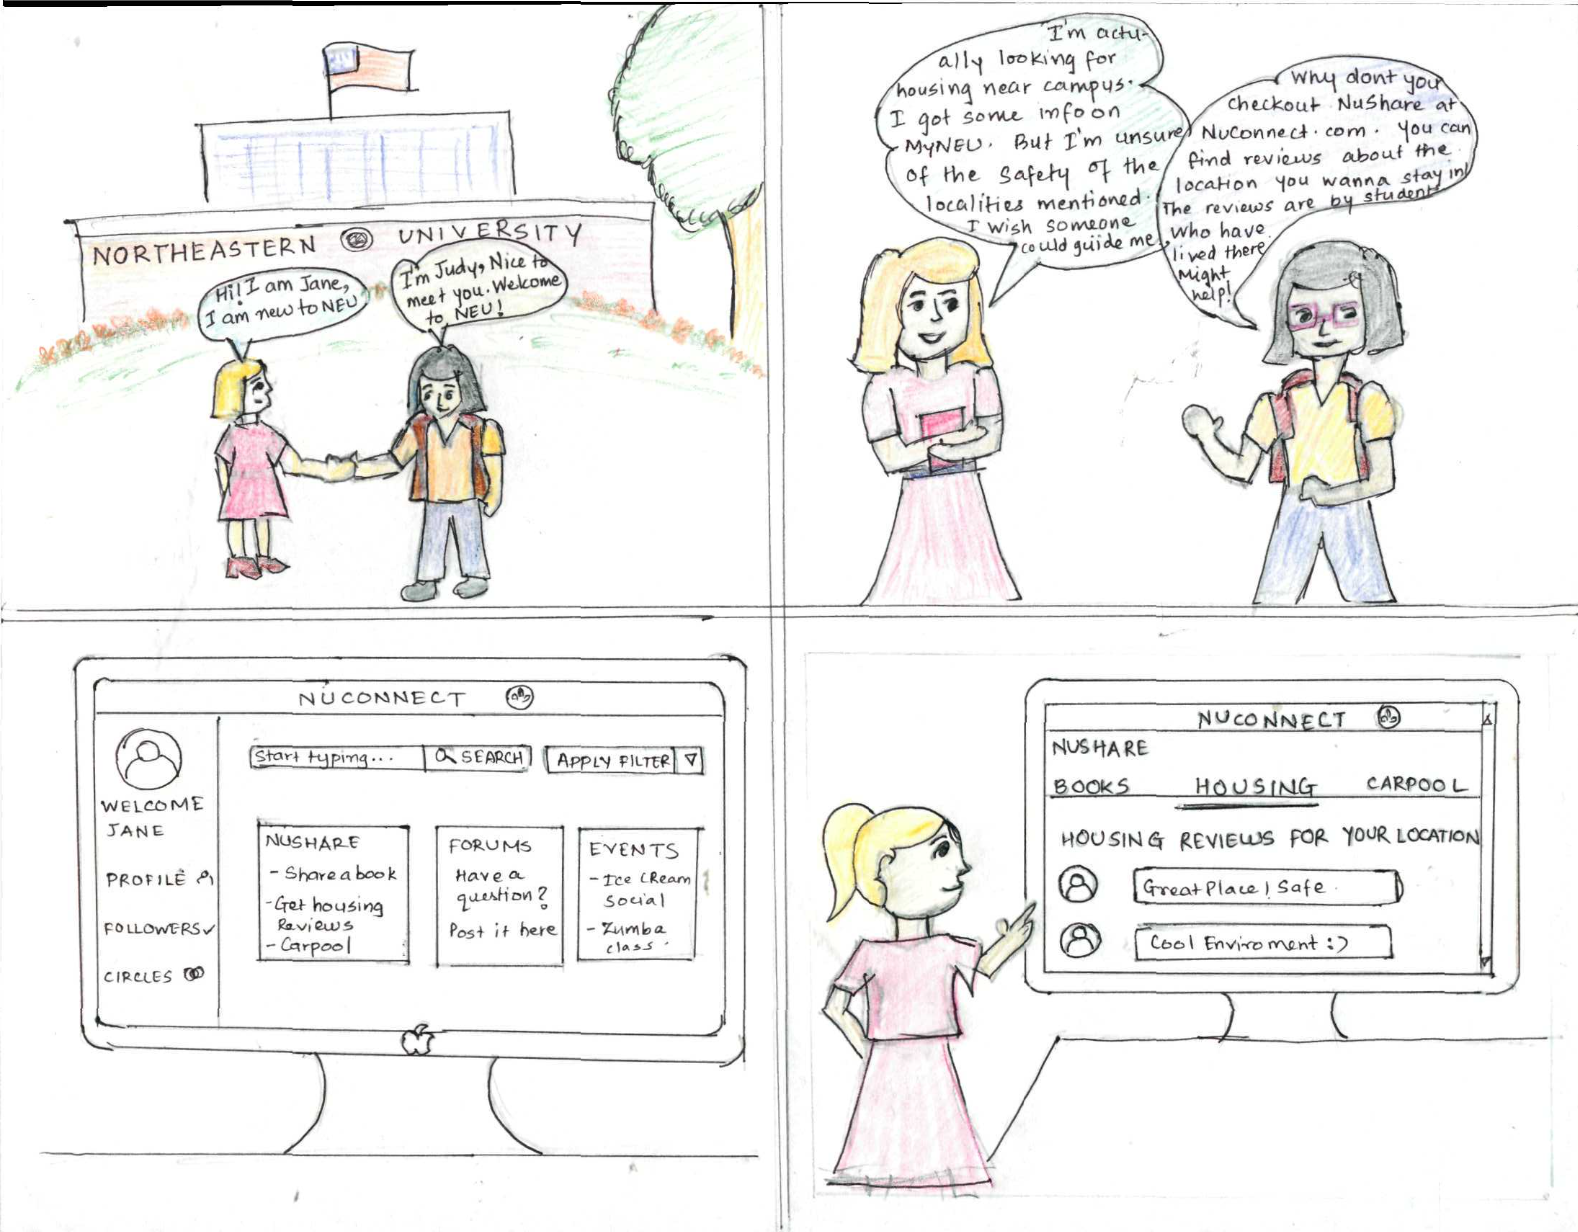 NORTHEASTERN UNIVERSITY
Hi! I am Jane,
I am new to NEU
I'm Judy, Nice to
meet you. Welcome
to NEU!
I'm actu-
ally looking for
housing near campus.
I got some info on
MyNEU. But I'm unsure
of the safety of the
localities mentioned.
I wish someone
could guide me.
Why dont you
checkout NuShare at
NuConnect.com. You can
find reviews about the
location you wanna stay in!
The reviews are by students
who have
lived there
Might
help!
NUCONNECT
WELCOME
JANE
PROFILE
FOLLOWERS
CIRCLES
Start typing...
SEARCH
APPLY FILTER
NUSHARE
- Share a book
- Get housing
Reviews
- Carpool
FORUMS
Have a
question?
Post it here
EVENTS
- Ice CReam
Social
- Zumba
class.
NUCONNECT
NUSHARE
BOOKS HOUSING CARPOOL
HOUSING REVIEWS FOR YOUR LOCATION
Great Place! Safe.
Cool Enviroment :)